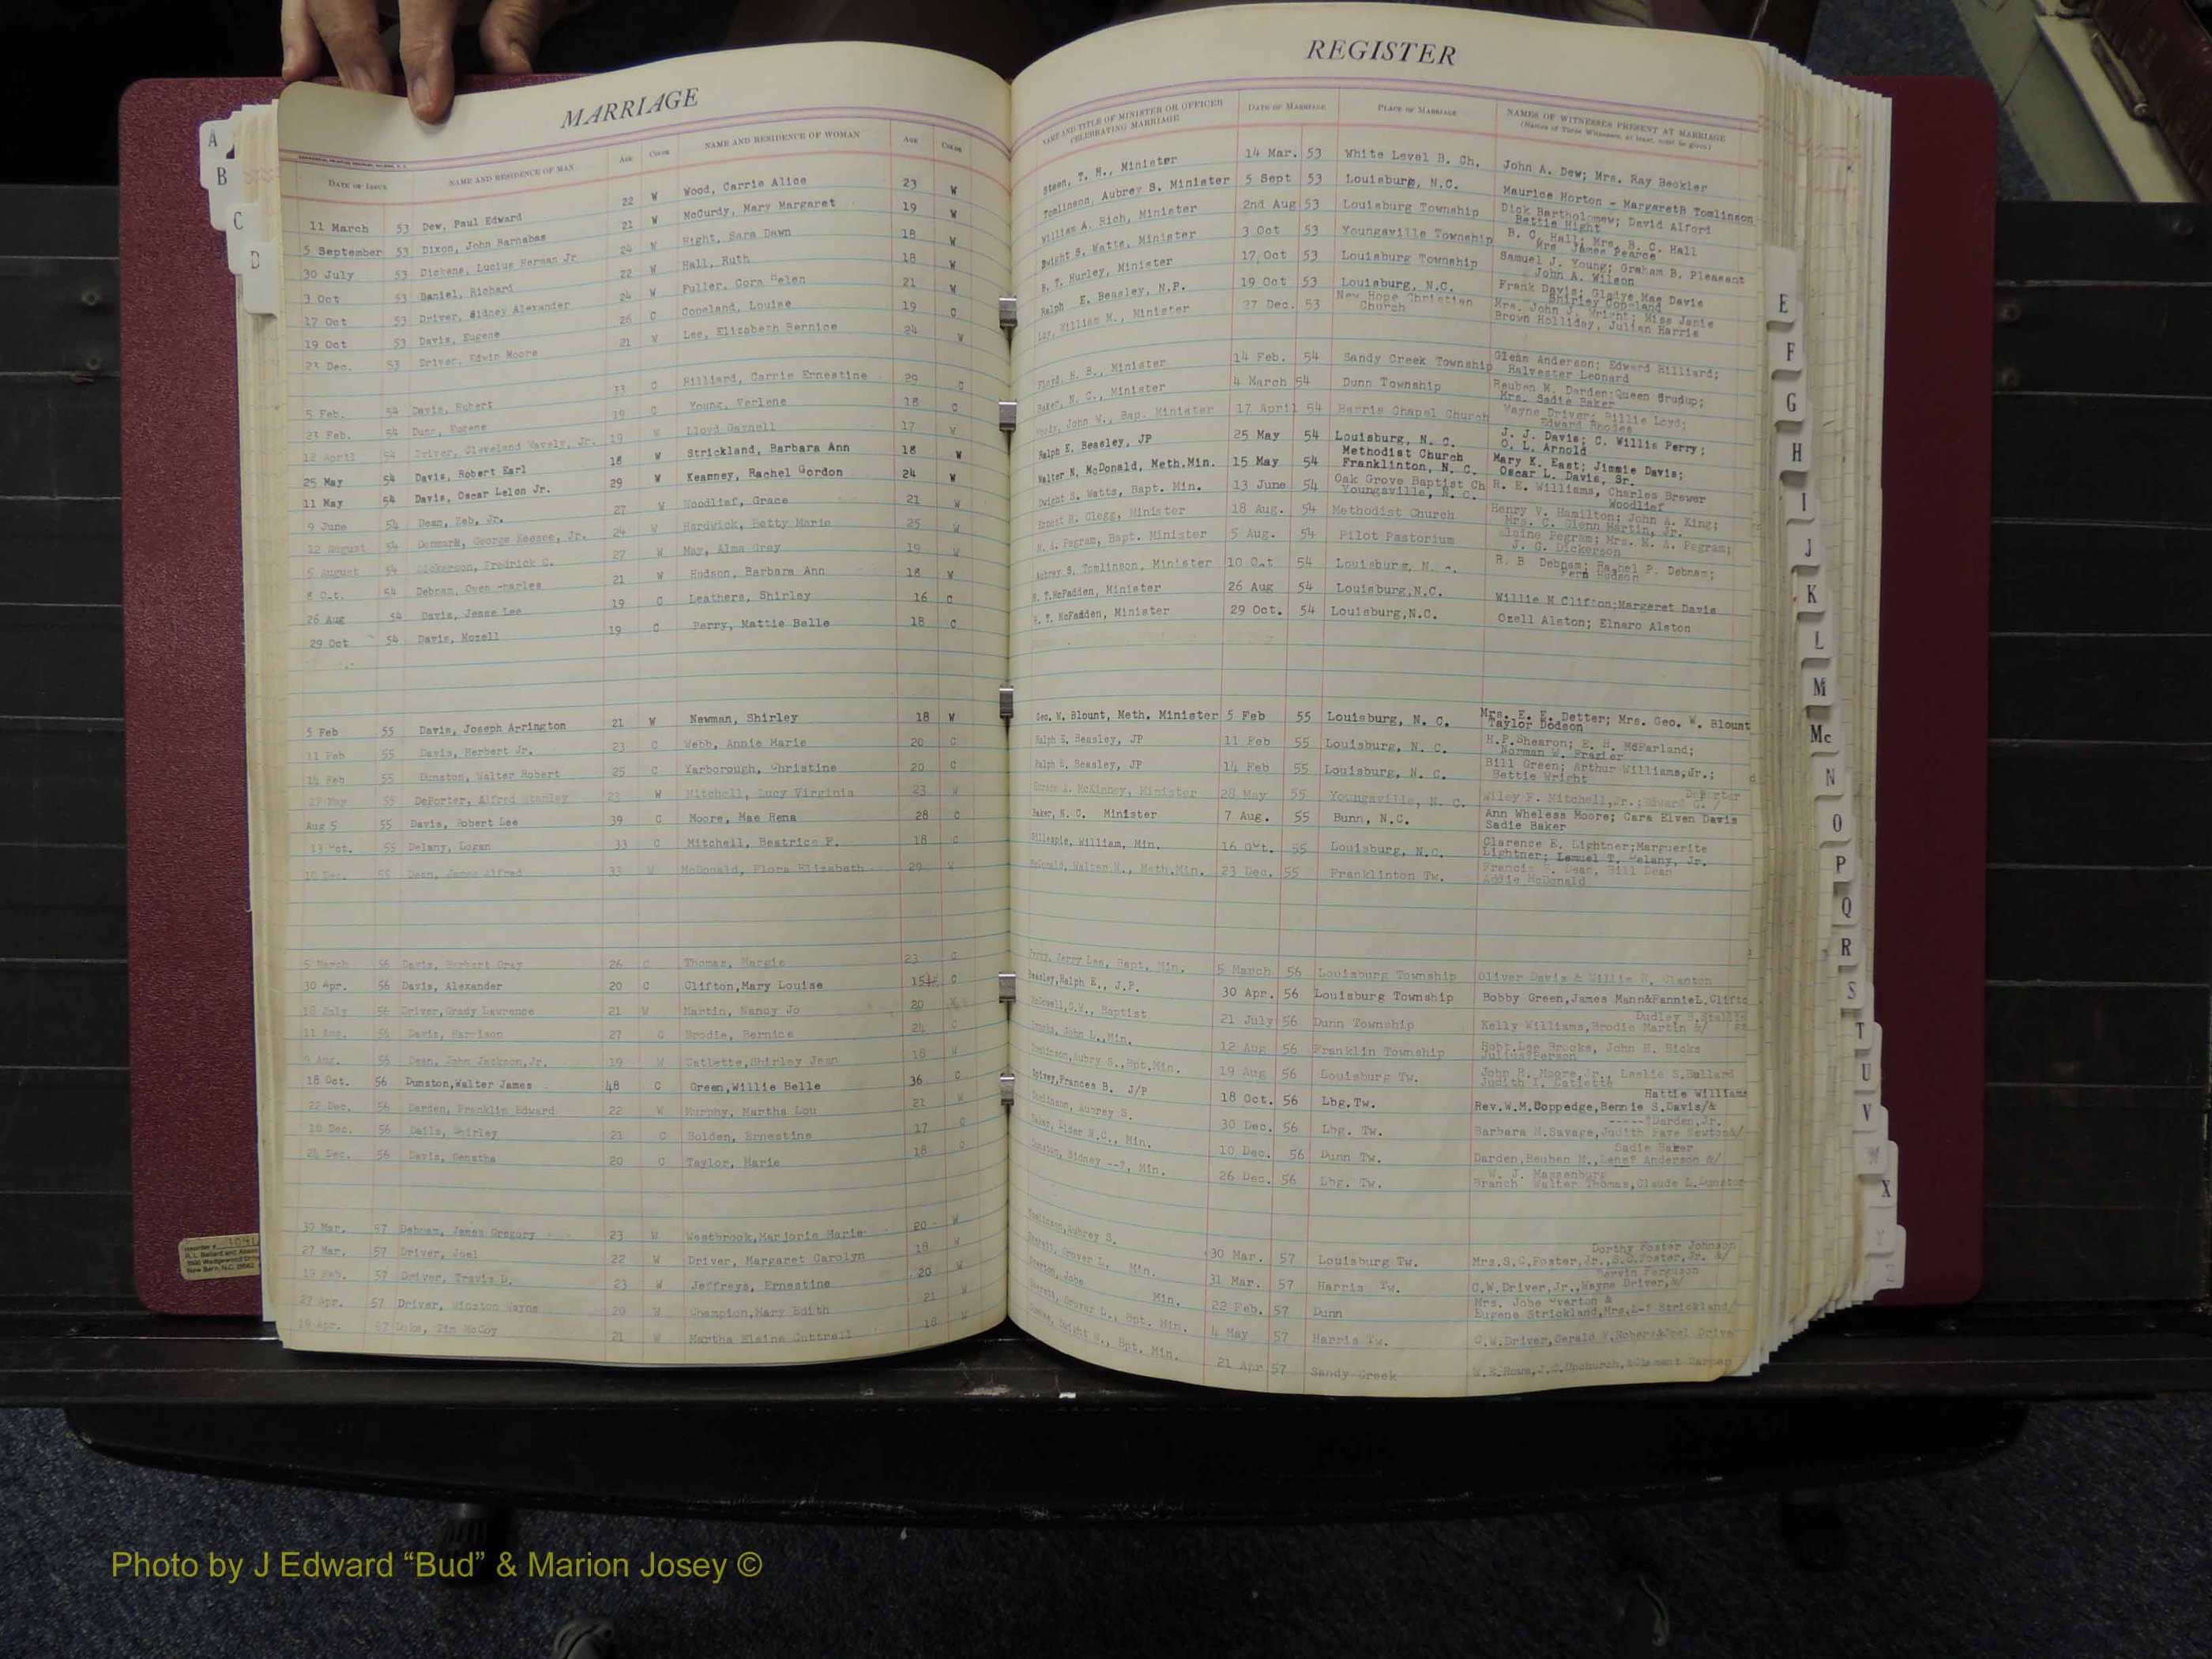 MARRIAGE
DATE OF ISSUE NAME AND RESIDENCE OF MAN AGE COLOR NAME AND RESIDENCE OF WOMAN AGE COLOR
11 March 53 Dew, Paul Edward 22 W Wood, Carrie Alice 23 W
5 September 53 Dixon, John Barnabas 21 W McCurdy, Mary Margaret 19 W
30 July 53 Dickens, Lucius Herman Jr 24 W Hight, Sara Dawn 18 W
3 Oct 53 Daniel, Richard 22 W Hall, Ruth 18 W
17 Oct 53 Driver, Sidney Alexander 24 W Fuller, Cora Helen 21 W
19 Oct 53 Davis, Eugene 26 C Copeland, Louise 19 C
23 Dec. 53 Driver, Edwin Moore 21 W Lee, Elizabeth Bernice 24 W
5 Feb. 54 Davis, Hubert 33 C Hilliard, Carrie Ernestine 29 C
23 Feb. 54 Dunn, Eugene 19 C Young, Verlene 18 C
12 April 54 Driver, Cleveland Jr. 19 W Lloyd Gaynell 17 W
25 May 54 Davis, Robert Earl 18 W Strickland, Barbara Ann 18 W
11 May 54 Davis, Oscar Lelon Jr. 29 W Kearney, Rachel Gordon 24 W
9 June 54 Dean, Zeb, Jr. 27 W Woodlief, Grace 21 W
12 August 54 Denmark, George Keesee, Jr. 24 W Hardwick, Betty Marie 25 W
5 August 54 Dickerson, Fredrick C. 27 W May, Alma Gray 19 W
8 Oct. 54 Debnam, Owen Charles 21 W Hudson, Barbara Ann 18 W
26 Aug 54 Davis, Jesse Lee 19 C Leathers, Shirley 16 C
29 Oct 54 Davis, Mozell 19 C Perry, Mattie Belle 18 C
5 Feb 55 Davis, Joseph Arrington 21 W Newman, Shirley 18 W
11 Feb 55 Davis, Herbert Jr. 23 C Webb, Annie Marie 20 C
14 Feb 55 Dunston, Walter Robert 25 C Yarborough, Christine 20 C
27 May 55 DePorter, Alfred Stanley 23 W Mitchell, Lucy Virginia 23 W
Aug 5 55 Davis, Robert Lee 39 C Moore, Mae Rena 28 C
13 Oct. 55 Delany, Logan 33 C Mitchell, Beatrice F. 18 C
10 Dec. 55 Dean, James Alfred 33 W McDonald, Flora Elizabeth 29 W
5 March 56 Davis, Herbert Gray 26 C Thomas, Margie 23 C
30 Apr. 56 Davis, Alexander 20 C Clifton,Mary Louise 15 C
18 July 56 Driver,Grady Lawrence 21 W Martin, Nancy Jo 20 W
11 Aug. 56 Davis, Harrison 27 C Brodie, Bernice 24 C
9 Aug. 56 Dean, John Jackson,Jr. 19 W Catlette,Shirley Jean 18 W
18 Oct. 56 Dunston,Walter James 48 C Green,Willie Belle 36 C
22 Dec. 56 Darden, Franklin Edward 22 W Murphy, Martha Lou 21 W
10 Dec. 56 Dails, Shirley 21 C Bolden, Ernestine 17 C
24 Dec. 56 Davis, Genatha 20 C Taylor, Marie 18 C
30 Mar. 57 Debnam, James Gregory 23 W Westbrook,Marjorie Marie 20 W
27 Mar. 57 Driver, Joel 22 W Driver, Margaret Carolyn 18 W
19 Feb. 57 Driver, Travis D. 23 W Jeffreys, Ernestine 20 W
27 Apr. 57 Driver, Winston Wayne 20 W Champion,Mary Edith 21 W
19 Apr. 57 Duke, Tim McCoy 21 W Martha Elaine Cottrell 18 W
REGISTER
NAME AND TITLE OF MINISTER OR OFFICER CELEBRATING MARRIAGE DATE OF MARRIAGE PLACE OF MARRIAGE NAMES OF WITNESSES PRESENT AT MARRIAGE
(Names of Three Witnesses, at least, must be given)
Steen, T. H., Minister 14 Mar. 53 White Level B. Ch. John A. Dew; Mrs. Ray Beckler
Tomlinson, Aubrey S. Minister 5 Sept 53 Louisburg, N.C. Maurice Horton - MargaretB Tomlinson
William A. Rich, Minister 2nd Aug 53 Louisburg Township Dick Bartholomew; David Alford
Bettie Hight
Dwight S. Watts, Minister 3 Oct 53 Youngsville Township B. C. Hall; Mrs. B. C. Hall
Mrs James Pearce
B. T. Hurley, Minister 17 Oct 53 Louisburg Township Samuel J. Young; Graham B. Pleasant
John A. Wilson
Ralph E. Beasley, N.P. 19 Oct 53 Louisburg, N.C. Frank Davis; Gladys Mae Davis
Shirley Copeland
Loy, William M., Minister 27 Dec. 53 New Hope Christian Church Mrs. John J. Wright; Miss Janie
Brown Holliday, Julian Harris
Floyd, H. B., Minister 14 Feb. 54 Sandy Creek Township Glenn Anderson; Edward Hilliard;
Halvester Leonard
Baker, N. C., Minister 4 March 54 Dunn Township Reuben M. Darden;Queen Brudup;
Mrs. Sadie Baker
John W., Bap. Minister 17 April 54 Harris Chapel Church Wayne Driver; Billie Loyd;
Edward Rhodes
Ralph E. Beasley, JP 25 May 54 Louisburg, N. C. J. J. Davis; C. Willis Perry;
O. L. Arnold
Walter N. McDonald, Meth.Min. 15 May 54 Methodist Church Franklinton, N. C. Mary K. East; Jimmie Davis;
Oscar L. Davis, Sr.
Dwight S. Watts, Bapt. Min. 13 June 54 Oak Grove Baptist Ch Youngsville, N. C. R. E. Williams, Charles Brewer
Woodlief
Ernest R. Clegg, Minister 18 Aug. 54 Methodist Church Henry V. Hamilton; John A. King;
Mrs. C. Glenn Martin, Jr.
M. A. Pegram, Bapt. Minister 5 Aug. 54 Pilot Pastorium Elaine Pegram; Mrs. M. A. Pegram;
J. G. Dickerson
Aubrey S. Tomlinson, Minister 10 Oct 54 Louisburg, N. C. R. B Debnam; Rachel P. Debnam;
Fern Hudson
H. T.McFadden, Minister 26 Aug 54 Louisburg,N.C. Willie M Clifton;Margaret Davis
H. T. McFadden, Minister 29 Oct. 54 Louisburg,N.C. Ozell Alston; Elnaro Alston
Geo. W. Blount, Meth. Minister 5 Feb 55 Louisburg, N. C. Mrs. E. F. Detter; Mrs. Geo. W. Blount
Taylor Dodson
Ralph E. Beasley, JP 11 Feb 55 Louisburg, N. C. H.P.Shearon; E. H. McFarland;
Norman W. Frazier
Ralph E. Beasley, JP 14 Feb 55 Louisburg, N. C. Bill Green; Arthur Williams,Jr.;
Bettie Wright
McKinney, Minister 28 May 55 Youngsville, N. C. Wiley F. Mitchell,Jr.;Edward
DePorter
Baker, N. C. Minister 7 Aug. 55 Bunn, N.C. Ann Wheless Moore; Cara Elven Davis
Sadie Baker
Gillespie, William, Min. 16 Oct. 55 Louisburg, N.C. Clarence E. Lightner;Marguerite
Lightner; Lemuel T. Delany, Jr.
McDonald, Walter N., Meth.Min. 23 Dec. 55 Franklinton Tw. Francis Dean, Bill Dean
Addie McDonald
Perry, Jerry Lee, Bapt. Min. 5 March 56 Louisburg Township Oliver Davis & Willie N. Clanton
Beasley,Ralph E., J.P. 30 Apr. 56 Louisburg Township Bobby Green,James Mann&FannieL.Clifto
McDowell,G.W., Baptist 21 July 56 Dunn Township Kelly Williams,Brodie Martin &/
Brooks, John L.,Min. 12 Aug 56 Franklin Township Robt.Lee Brooks, John H. Hicks
Julius?Person
Tomlinson,Aubry S.,Bpt.Min. 19 Aug 56 Louisburg Tw. John R. Moore,Jr., Leslie S.Ballard
Judith I. Catlette
Spivey,Frances B. J/P 18 Oct. 56 Lbg.Tw. Hattie Williams
Rev.W.M.Coppedge,Bennie S.Davis/&
Tomlinson, Aubrey S. 30 Dec. 56 Lbg. Tw. Darden,Jr.
Barbara M.Savage,Judith Faye Newton&/
Baker, Elder N.C., Min. 10 Dec. 56 Dunn Tw. Sadie Baker
Darden,Reuben M.,Lene? Anderson &/
Dunston, Sidney --?, Min. 26 Dec. 56 Lbg. Tw. W. J. Massenburg
Branch Walter Thomas,Claude L.Dunston
Tomlinson,Aubrey S. 30 Mar. 57 Louisburg Tw. Dorthy Foster Johnson
Mrs.S.C.Foster,Jr.,S.C.Foster,Jr. &/
Grover L. Min. 31 Mar. 57 Harris Tw. Ferguson
C.W.Driver,Jr.,Wayne Driver,&/
Overton, John Min. 22 Feb. 57 Dunn Mrs. Johe Overton &
Eugene Strickland,Mrs.L-? Strickland/
Grover L., Bpt. Min. 4 May 57 Harris Tw. C.W.Driver,Gerald
Dwight W., Bpt. Min. 21 Apr 57 Sandy Creek W.E.Rowe,J.C.Upchurch,&Clement
A
B
C
D
E
F
G
H
I
J
K
L
M
Mc
N
O
P
Q
R
S
T
U
V
W
X
Y
Z
Photo by J Edward “Bud” & Marion Josey ©